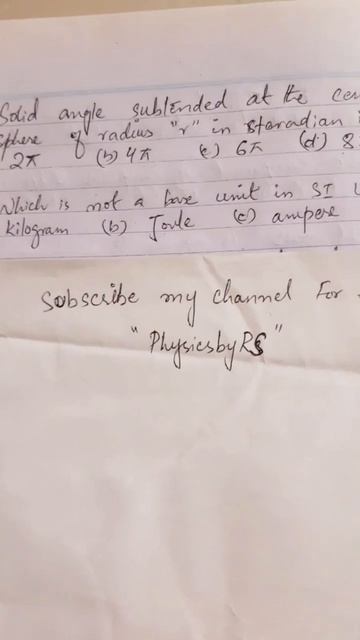 Solid angle subtended at the cen
sphere of radius "r" in steradian i
2π (b) 4π (c) 6π (d) 8
Which is not a base unit in SI u
kilogram (b) Joule (c) ampere
Subscribe my channel For
"PhysicsbyRS"